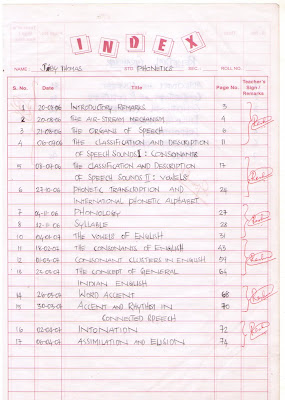 INDEX
NAME Toby Thomas STD PHONETICS SEC. ROLL NO.
S. No. Date Title Page No. Teacher's Sign / Remarks
1 20-08-06 Introductory Remarks 3
2 20-08-06 The Air-Stream Mechanism 4
3 21-08-06 The Organs of Speech 6
4 The Classification and Description 11
of Speech Sounds I : Consonants
5 The Classification and Description 17
of Speech Sounds II : Vowels
6 27-10-06 Phonetic Transcription and 24
International Phonetic Alphabet
7 04-11-06 Phonology 27
8 12-11-06 Syllable 28
10 The Vowels of English 31
11 18-02-07 The Consonants of English 43
12 01-03-07 Consonant Clusters in English 59
13 The Concept of General 64
Indian English
14 26-03-07 Word Accent 68
15 30-03-07 Accent and Rhythm in 70
Connected Speech
16 02-04-07 Intonation 72
17 06-04-07 Assimilation and Elision 74